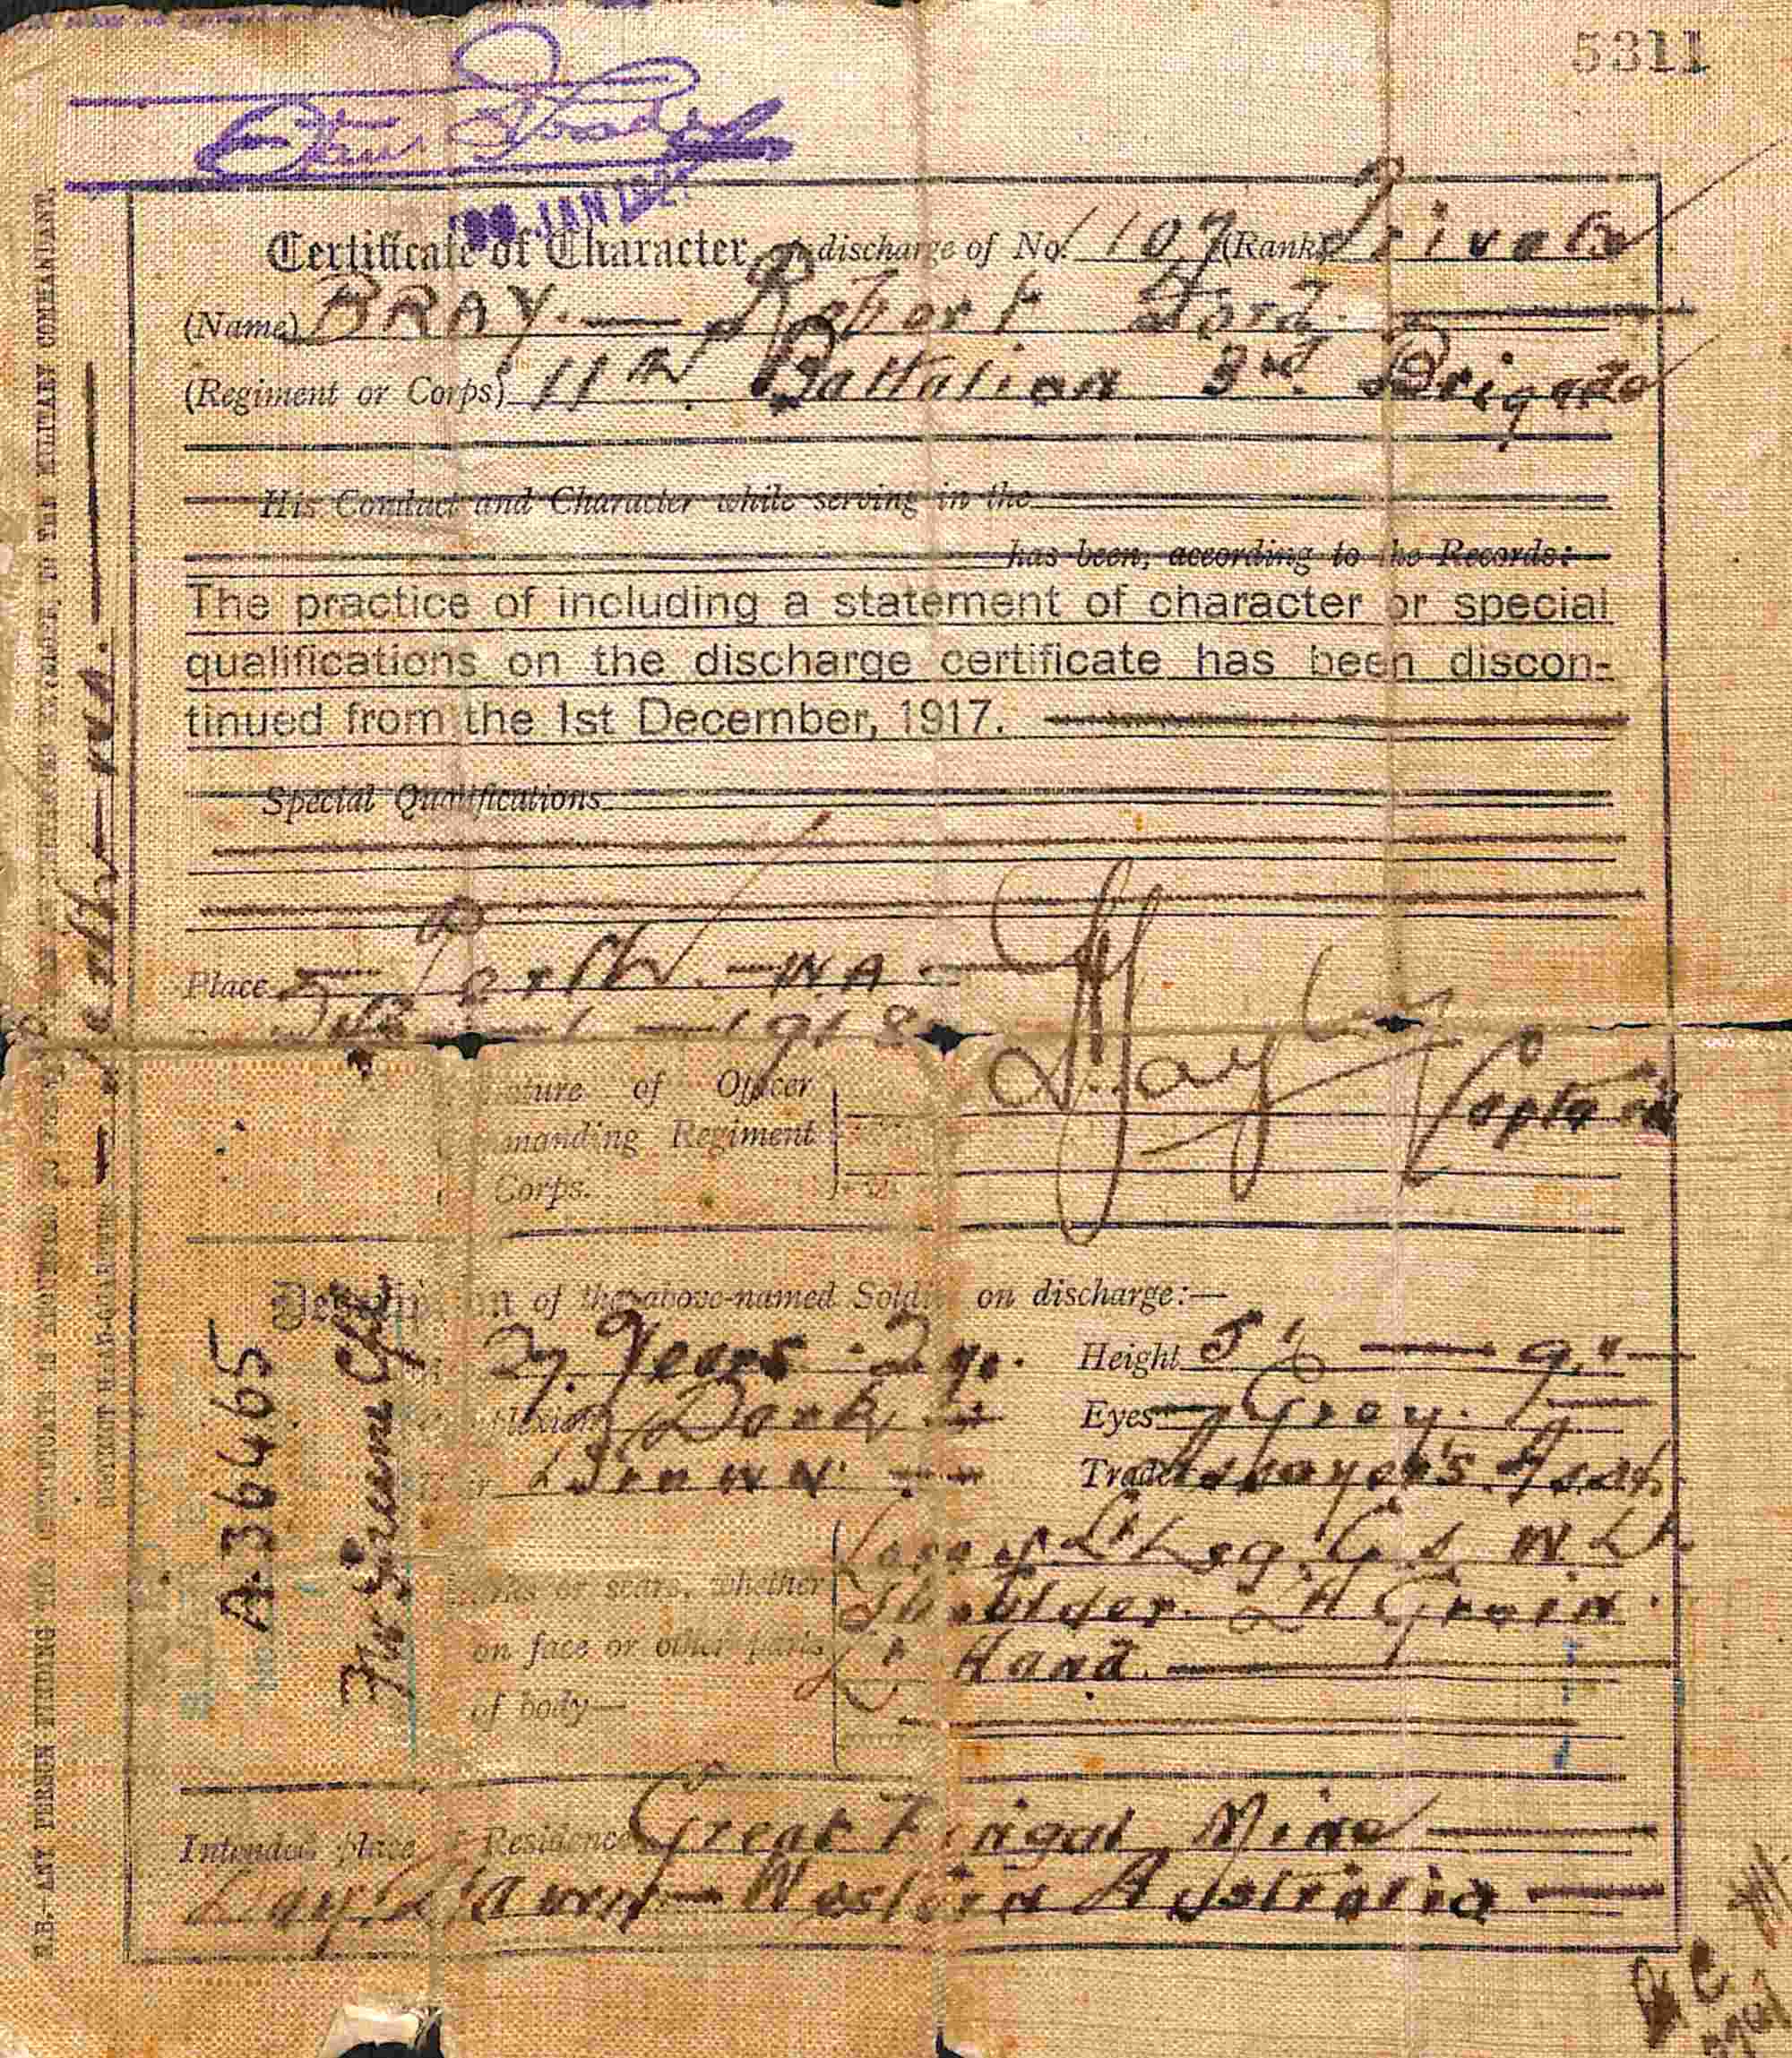 5311
JAN
Certificate of Character on discharge of No. 1107 (Rank) Private
(Name) BRAY. — Robert Ford.
(Regiment or Corps) 11th Battalion 3rd Brigade
His Conduct and Character while serving in the
has been, according to the Records:
The practice of including a statement of character or special
qualifications on the discharge certificate has been discon-
tinued from the 1st December, 1917.
Special Qualifications
Place Perth. — W.A.
1 — 1918
ture of Officer
manding Regiment
Corps.
Captain
of the above-named Soldi on discharge:—
27 Years Height 5 9"
Dark Eyes Grey.
Brown Trade Assayer's Asst.
Leg. G S W
rks or scars, whether Shoulder. Groin.
on face or other parts Hand.
of body—
Intended place f Residence Great Fingal Mine
Day Dawn — Western Australia
A 36465
N.B.—ANY PERSON FINDING THIS CERTIFICATE IS REQUESTED TO THE MILITARY COMMANDANT,
DISTRICT HEAD-QUARTERS